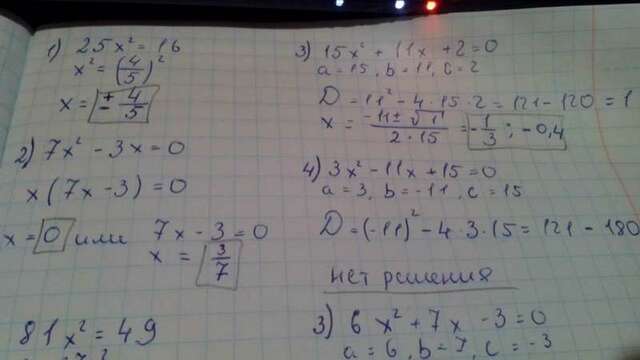 1) 25x² = 16
x² = (4/5)²
x = ± 4/5
2) 7x² - 3x = 0
x(7x - 3) = 0
x = 0 или 7x - 3 = 0
x = 3/7
81x² = 49
3) 15x² + 11x + 2 = 0
a = 15, b = 11, c = 2
D = 11² - 4·15·2 = 121 - 120 = 1
x = (-11 ± √1)/(2·15) = -1/3; -0,4
4) 3x² - 11x + 15 = 0
a = 3, b = -11, c = 15
D = (-11)² - 4·3·15 = 121 - 180
нет решения
3) 6x² + 7x - 3 = 0
a = 6, b = 7, c = -3